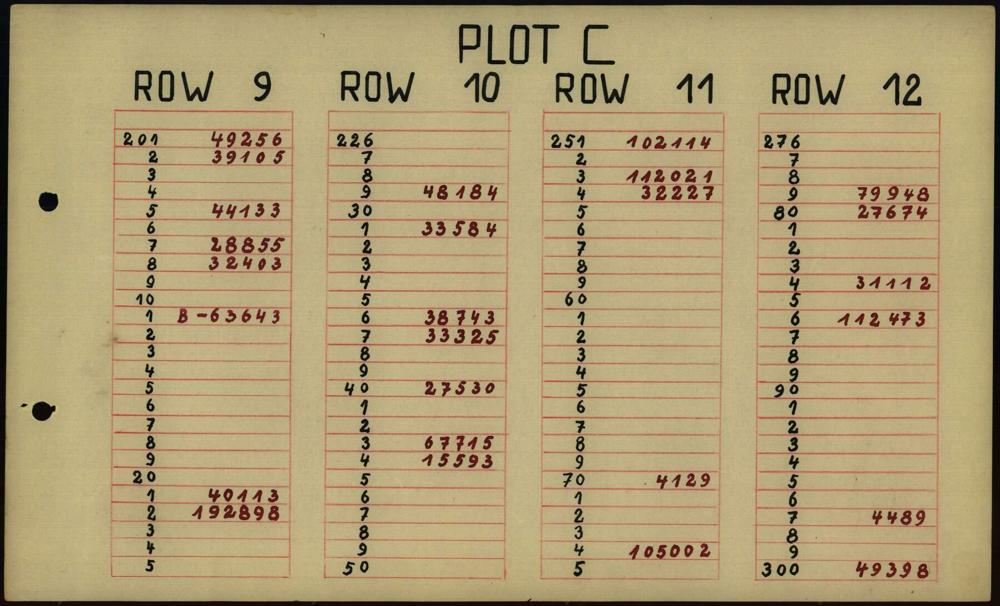 PLOT C
ROW 9
201 49256
2 39105
3
4
5 44133
6
7 28855
8 32403
9
10
1 B-63643
2
3
4
5
6
7
8
9
20
1 40113
2 192898
3
4
5
ROW 10
226
7
8
9 48184
30
1 33584
2
3
4
5
6 38743
7 33325
8
9
40 27530
1
2
3 67715
4 15593
5
6
7
8
9
50
ROW 11
251 102114
2
3 112021
4 32227
5
6
7
8
9
60
1
2
3
4
5
6
7
8
9
70 4129
1
2
3
4 105002
5
ROW 12
276
7
8
9 79948
80 27674
1
2
3
4 31112
5
6 112473
7
8
9
90
1
2
3
4
5
6
7 4489
8
9
300 49398